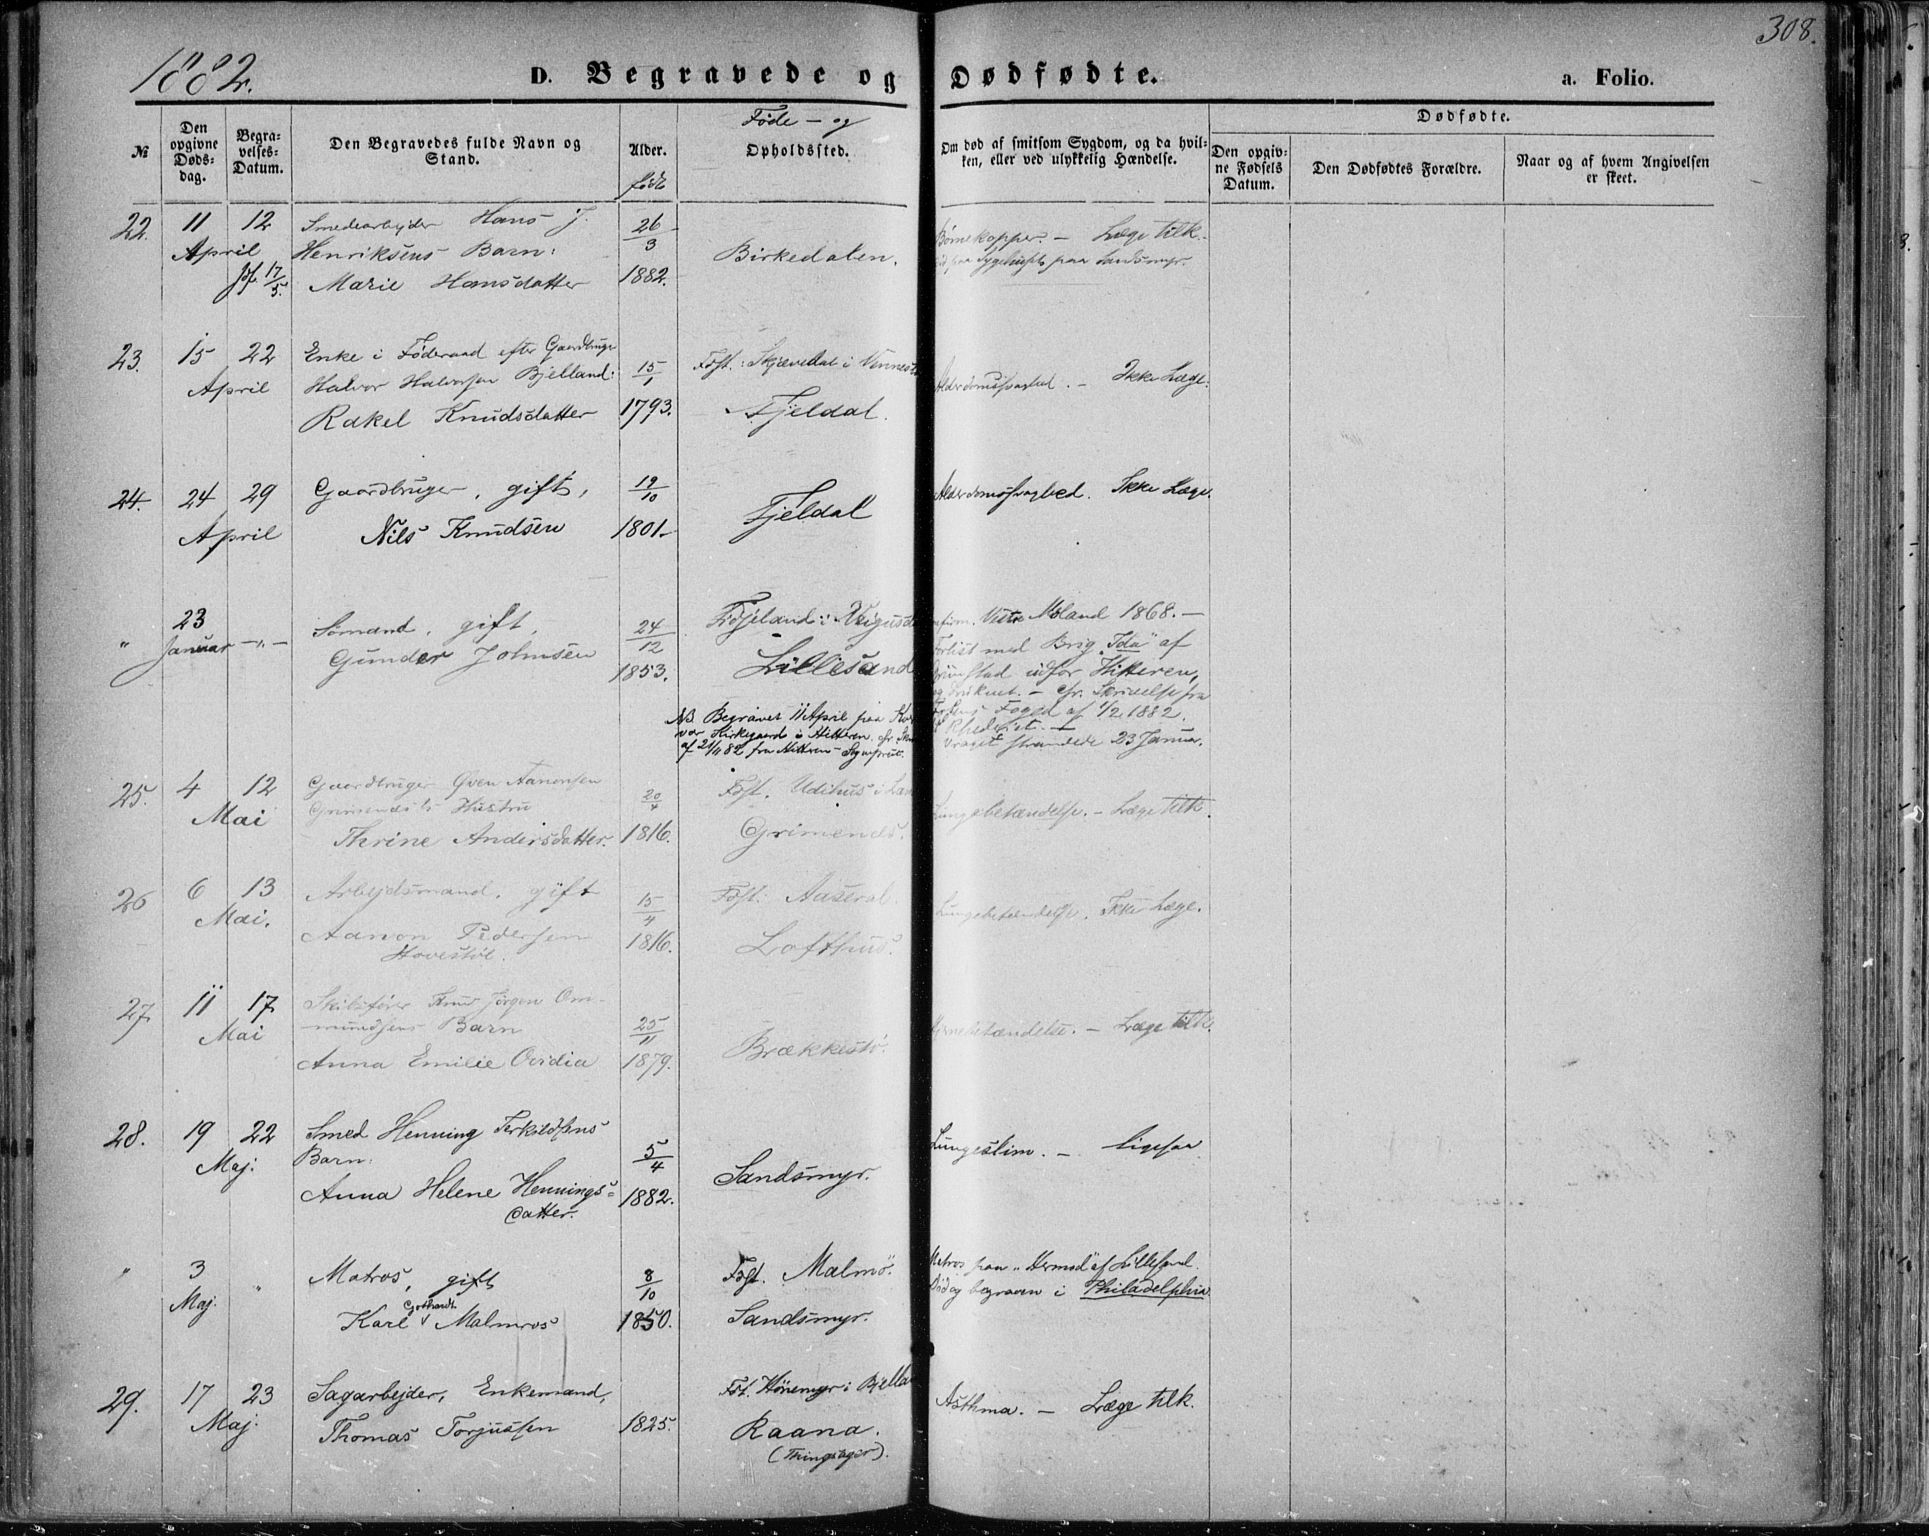 1882.
308.
D. Begravede og Dødfødte.
a. Folio.
№
Den opgivne Døds-dag.
Begra-velses-Datum.
Den Begravedes fulde Navn og Stand.
Alder.
født
Føde- og
Opholdssted.
Om død af smitsom Sygdom, og da hvil-
ken, eller ved ulykkelig Hændelse.
Dødfødte.
Den opgiv-
ne Fødsels
Datum.
Den Dødfødtes Forældre.
Naar og af hvem Angivelsen
er skeet.
22. 11 12 Smedearbejder Hans J. 26/3 Børnekopper. - Læge tilk.
April Henriksens Barn: Birkedalen. paa Sygehuset paa Sandsmyr.
Jf. 17/5. Marie Hansdatter 1882.
23. 15 22 Enke i Føderaad efter Gaardbruger Fdst.: Skjævedal i Vennesla
April Halvor Halvorsen Bjelland: 15/1 - Ikke Læge.
Rakel Knudsdatter 1793. Fjeldal.
24. 24 29 Gaardbruger, gift, 19/10 Fjeldal Alderdomssvaghed. Ikke Læge.
April Nils Knudsen 1801.
" 23 Januar -"- Sømand, gift, 24/12 Møland 1868. -
Gunder Johnsen 1853. Lillesand Forlist med Brig "Ida" af
Grimstad udfor Hitteren,
og druknet. - cfr. Skrivelse fra
Foged af 1/2 1882.
NB. Begravet 11 April paa
Kirkegaard i Hitteren. cfr
af 21/11 82 fra Hitteren Sognepræst.
Vraget strandede 23 Januar.
25. 4 12 Gaardbruger Gven Aanonsen 20/4 Fdst. Udihus i
Mai Grimenes's Hustru Lungebetændelse. - Læge tilk.
Thrine Andersdatter. 1816. Grimenes.
26 6 13 Arbejdsmand, gift 15/4 Fdst: Aaseral. Lungebetændelse. Ikke Læge.
Mai. Aanon Pedersen 1816. Lofthus.
Hovestøl.
27 11 17 Skibsfører Knud Jørgen Om-
Mai mundsens Barn 25/11 Hjernebetændelse. - Læge tilk.
Anna Emilie Ovidia 1879. Brækkestø.
28. 19 22 Smed Henning Terkildsens Lungeslim. - ligesaa
Maj. Barn: 5/4 Sandsmyr.
Anna Helene Hennings- 1882.
datter.
" 3 " Matros, gift 8/10 Fdst. Malmö. Matros paa "Hermod" af Lillesand.
Maj. Karl Gothardt Malmros 1850. Sandsmyr. Død og begraven i Philadelphia
29. 17 23 Sagarbejder, Enkemand, Fdt. Hønemyr i Bjelland Asthma. - Læge tilk.
Maj. Thomas Torjussen 1825. Raana.
(Tingsager).